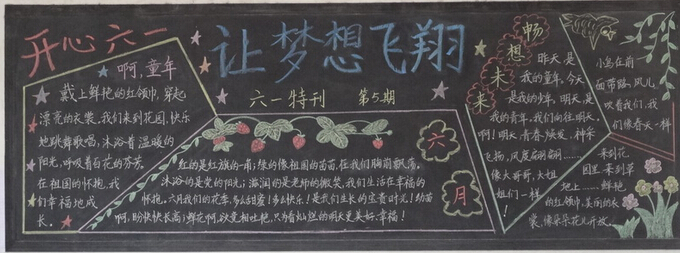 开心六一
让梦想飞翔
六一特刊 第5期
啊,童年
戴上鲜艳的红领巾,穿起
漂亮的衣裳,我们来到花园,快乐
地跳舞歌唱,沐浴着温暖的
阳光,呼吸着百花的芬芳
在祖国的怀抱,我
们幸福地成
长。
红的是红旗的一角;绿的像祖国的苗苗,在我们胸前飘荡,
沐浴的是党的阳光;滋润的是老师的微笑,我们生活在幸福的
怀抱,六月我们的花季,多么甜蜜!多么快乐!是我们生长的宝贵时光!幼苗
啊,盼快快长高;鲜花啊,欲竞相吐艳,只为看灿然的明天更美好,幸福!
六
月
畅
想
未
来
昨天,是
我的童年,今天
是我的少年,明天,是
我的青年,我们向往明天。
啊!明天,青春,焕发,神采
飞扬,风度翩翩……
像大哥哥,大姐
姐们一样!
小鸟在前
面带路,风儿
吹着我们,我
们像春天一样
来到花
园里,来到草
地上……鲜艳
的红领巾,美丽的衣
裳,像朵朵花儿开放。